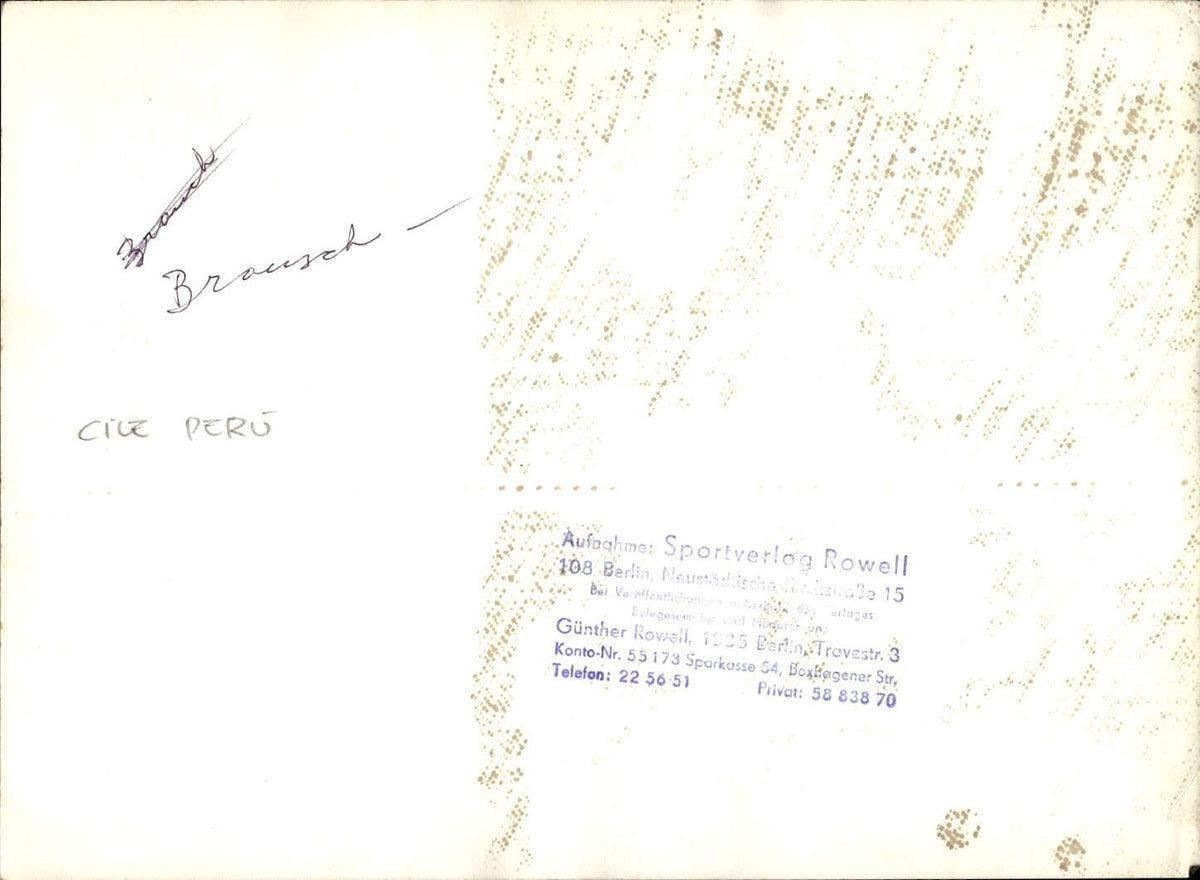 Brousch
Brousch
CILE PERÙ
Aufnahme: Sportverlag Rowell
108 Berlin, Neustädtische Kirchstraße 15
Bei Veröffentlichungen außerhalb des Verlages
Belegexemplar und Honorar an:
Günther Rowell, 1035 Berlin, Travestr. 3
Konto-Nr. 55173 Sparkasse 54, Boxhagener Str.
Telefon: 22 56 51 Privat: 58 838 70